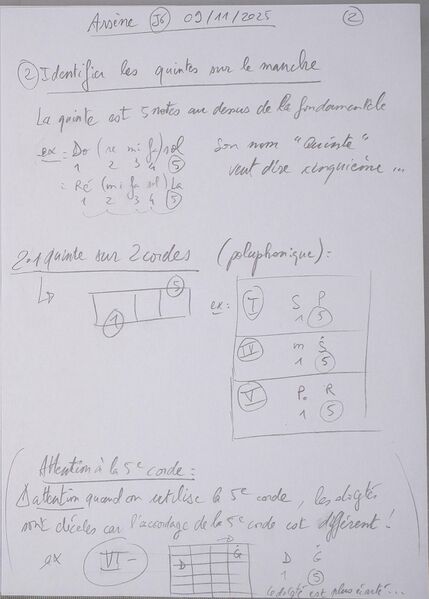 Arsène J6 09/11/2025 2
2 Identifier les quintes sur le manche
La quinte est 5 notes au dessus de la fondamentale
ex = Do (re mi fa) sol Son nom "Quinte"
1 2 3 4 5 veut dire cinquième ...
= Ré (mi fa sol) La
1 2 3 4 5
2.1 quinte sur 2 cordes (polyphonique) :
5
1
ex : I S P
1 5
IV m Ṡ
1 5
V P. R
1 5
Attention à la 5e corde :
attention quand on utilise la 5e corde, les doigtés
sont décalés car l'accordage de la 5e corde est différent !
ex VI - D Ġ D Ġ
1 5
le doigté est plus écarté...